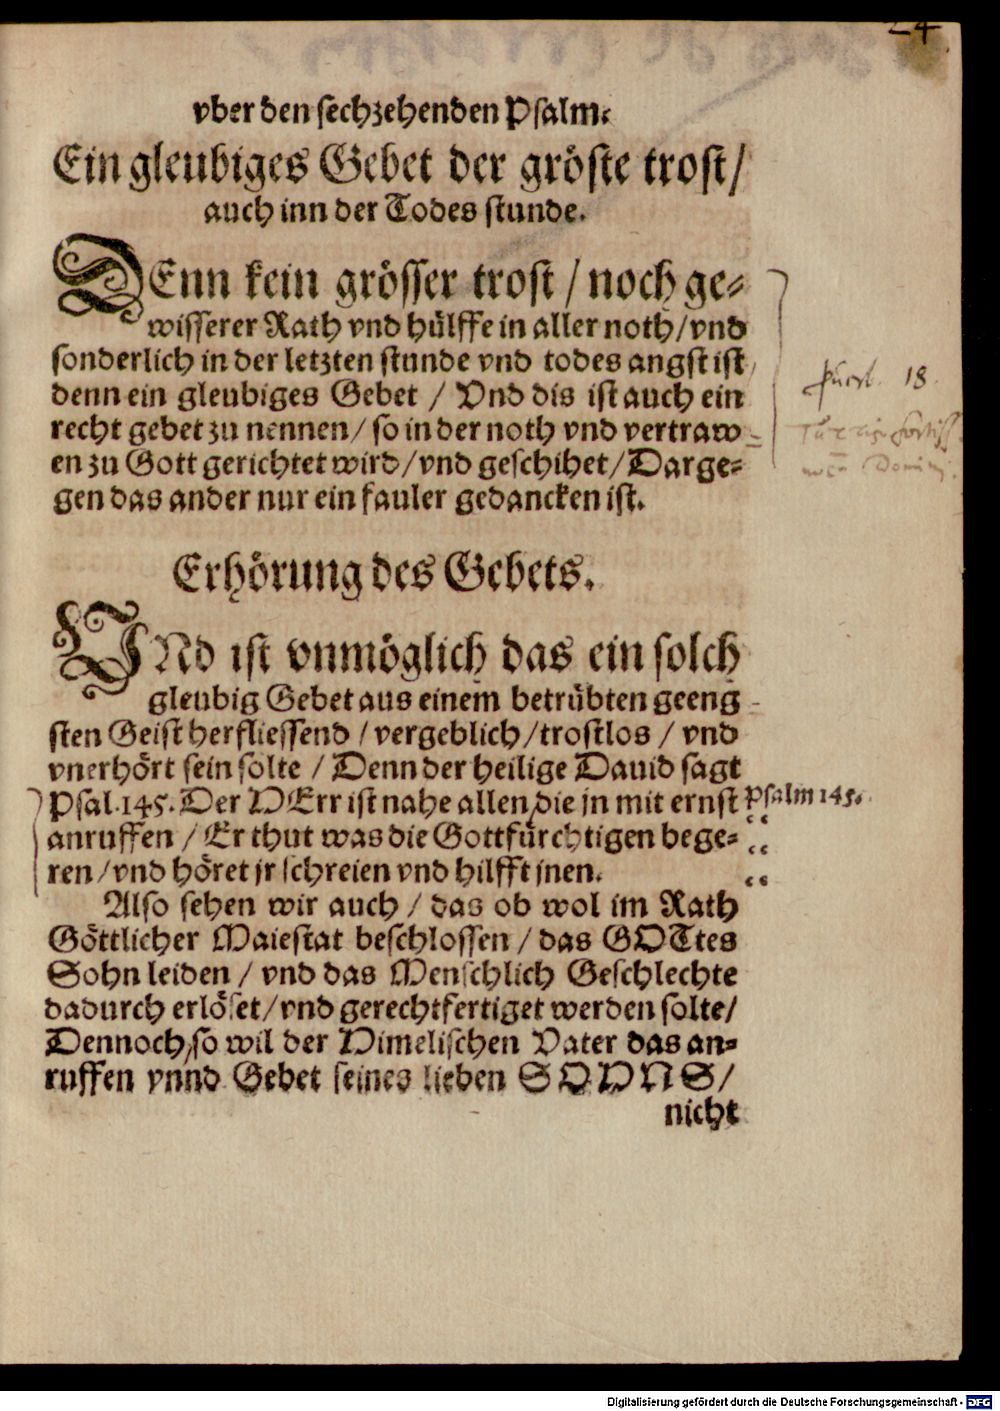 24
vber den sechzehenden Psalm.
Ein gleubiges Gebet der gröste trost/
auch inn der Todes stunde.
DEnn kein grösser trost / noch ge-
wisserer Rath vnd hülffe in aller noth/vnd
sonderlich in der letzten stunde vnd todes angst ist,
denn ein gleubiges Gebet / Vnd dis ist auch ein
recht gebet zu nennen/ so in der noth vnd vertraw
en zu Gott gerichtet wird/vnd geschihet/Darge-
gen das ander nur ein fauler gedancken ist.
18
Erhörung des Gebets.
VNd ist vnmöglich das ein solch
gleubig Gebet aus einem betrübten geeng
sten Geist herfliessend / vergeblich/trostlos / vnd
vnerhört sein solte / Denn der heilige Dauid sagt
Psal.145. Der HErr ist nahe allen, die jn mit ernst
Psalm 145.
anruffen / Er thut was die Gottfürchtigen bege-
ren/vnd höret jr schreien vnd hilfft jnen.
Also sehen wir auch / das ob wol im Rath
Göttlicher Maiestat beschlossen / das GOTtes
Sohn leiden / vnd das Menschlich Geschlechte
dadurch erlöset/vnd gerechtfertiget werden solte/
Dennoch,so wil der Himelischen Vater das an-
ruffen vnnd Gebet seines lieben SOHNS/
nicht
Digitalisierung gefördert durch die Deutsche Forschungsgemeinschaft - DFG